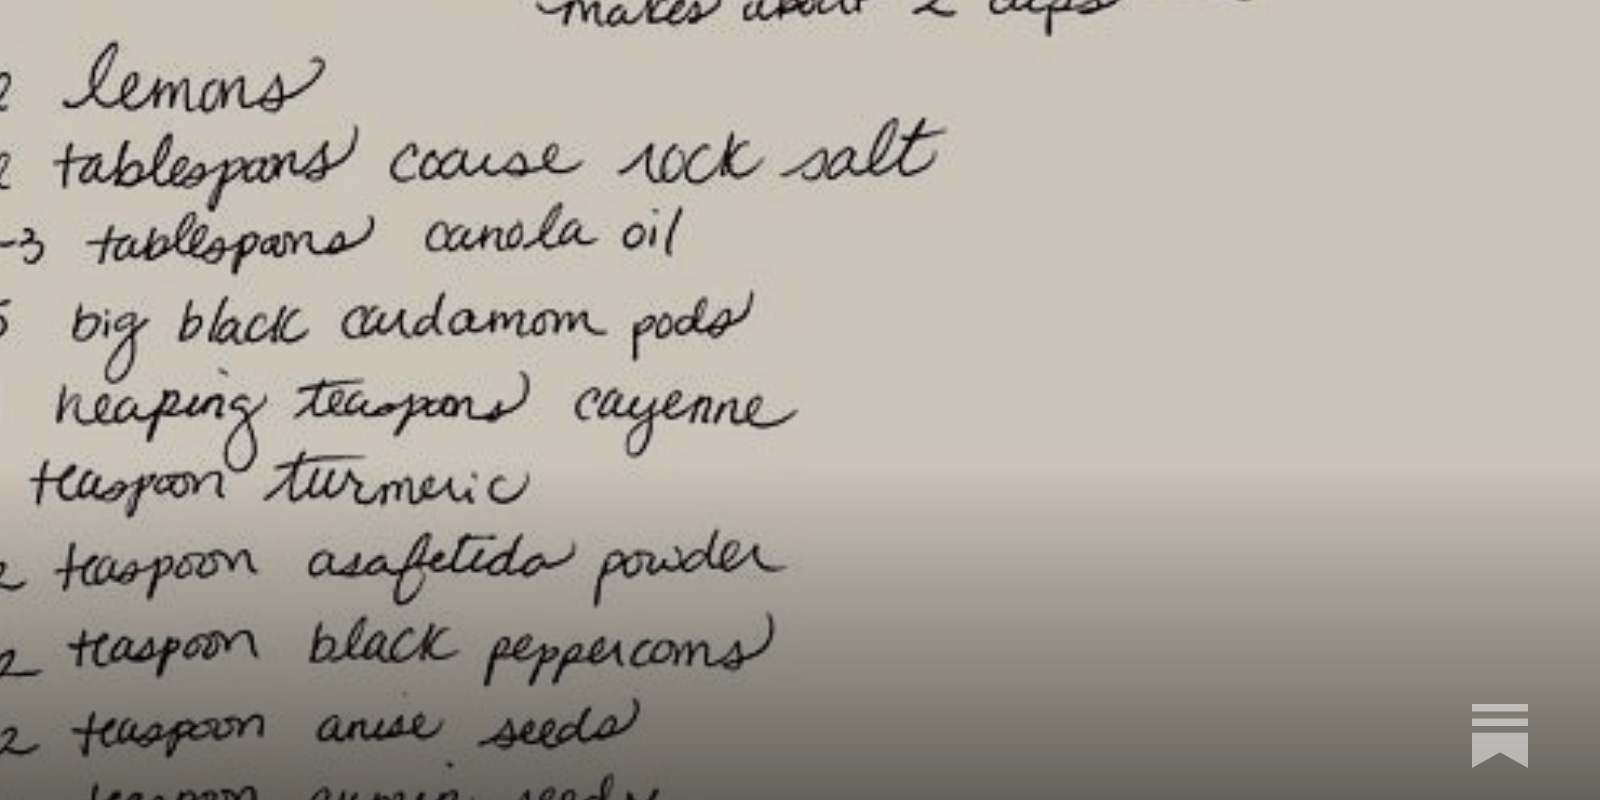 makes about 2 cups
2 lemons
2 tablespoons coarse rock salt
-3 tablespoons canola oil
5 big black cardamom pods
heaping teaspoons cayenne
teaspoon turmeric
2 teaspoon asafetida powder
2 teaspoon black peppercorns
2 teaspoon anise seeds
teaspoon cumin seeds